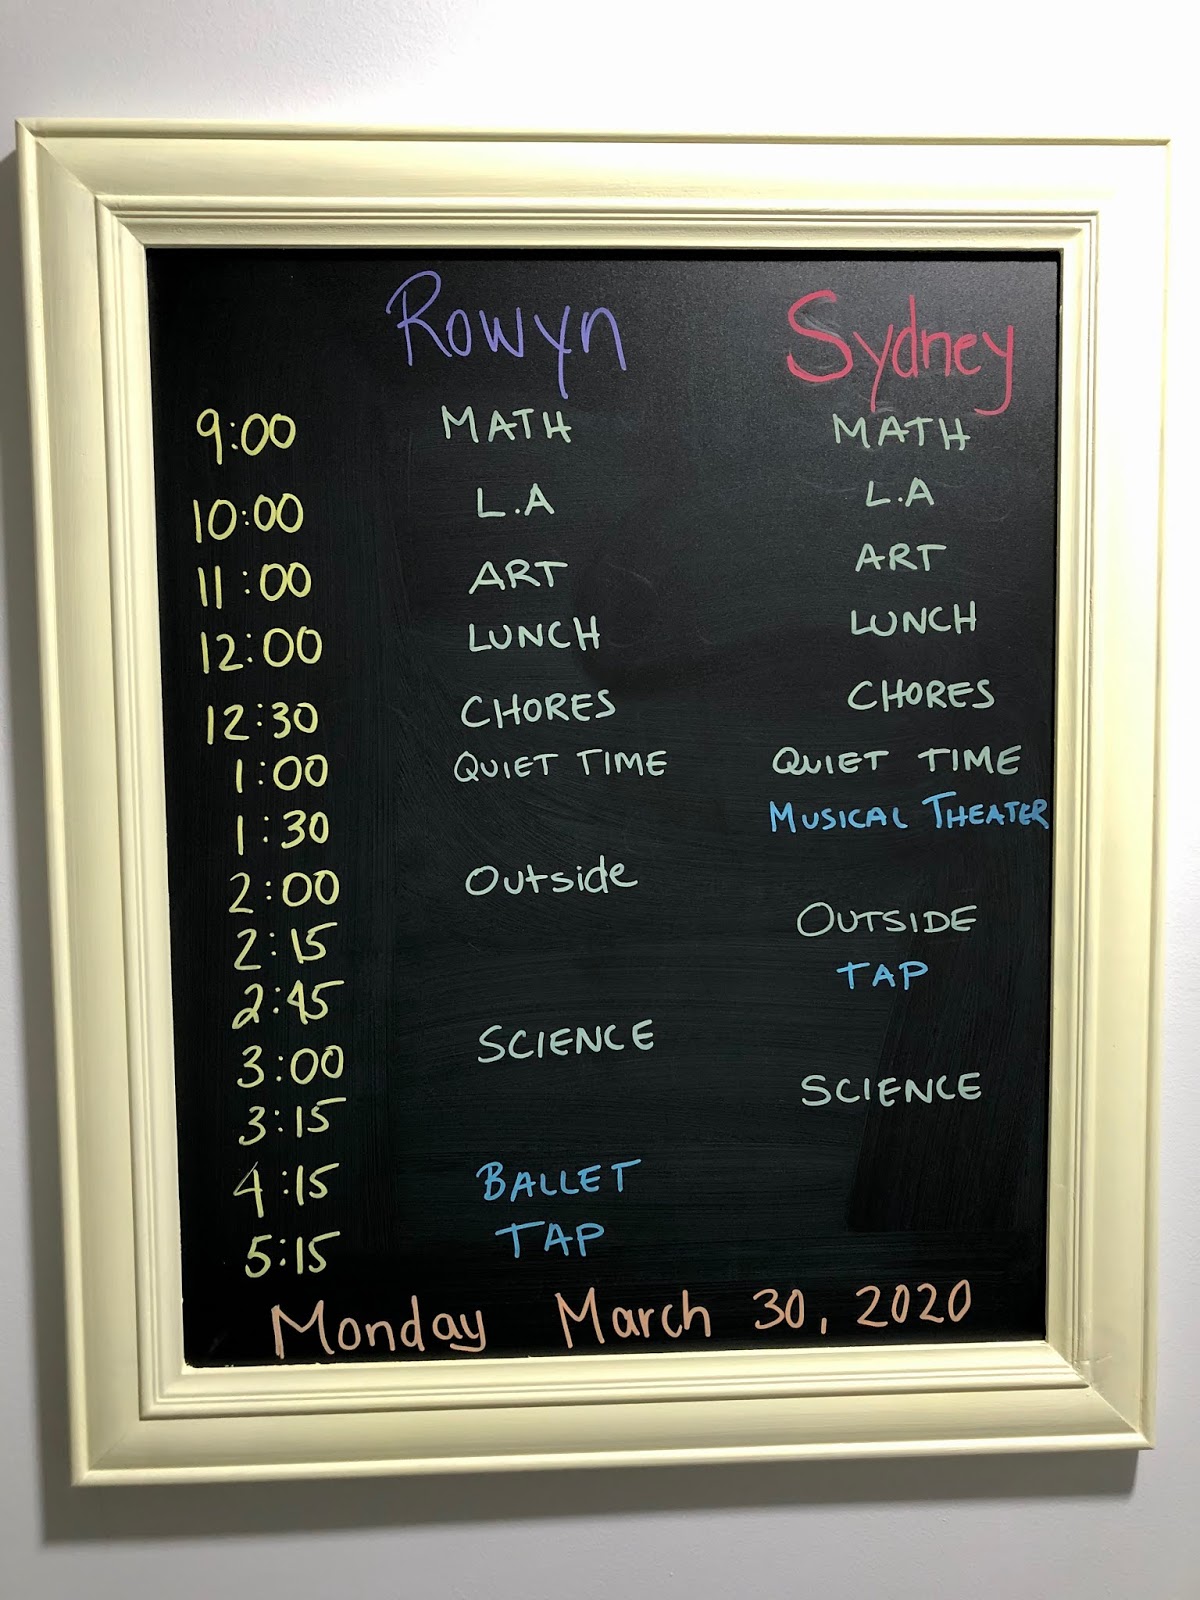 Rowyn Sydney
9:00 MATH MATH
10:00 L.A L.A
11:00 ART ART
12:00 LUNCH LUNCH
12:30 CHORES CHORES
1:00 QUIET TIME QUIET TIME
1:30 MUSICAL THEATER
2:00 Outside
2:15 OUTSIDE
2:45 TAP
3:00 SCIENCE
3:15 SCIENCE
4:15 BALLET
5:15 TAP
Monday March 30, 2020